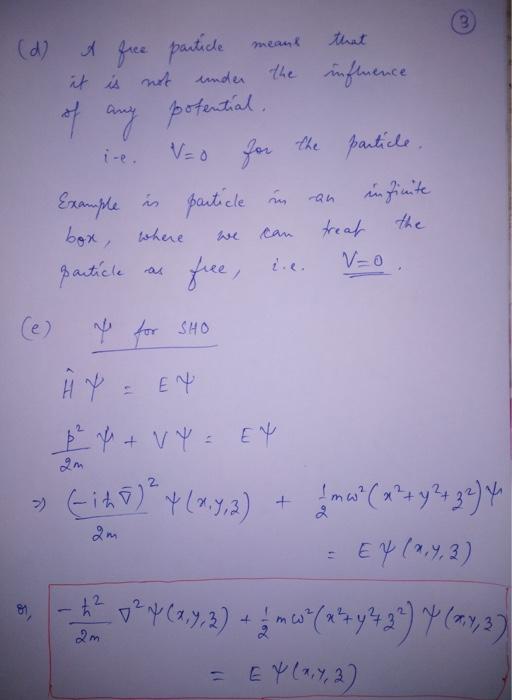 ③
(d) A free particle means that
it is not under the influence
of any potential.
i.e. V=0 for the particle.
Example is particle in an infinite
box, where we can treat the
particle as free, i.e. V=0.
(e) ψ for SHO
Ĥψ = Eψ
p²/2m ψ + Vψ = Eψ
⇒ (-iħ∇̄)²/2m ψ(x,y,z) + 1/2 mω²(x²+y²+z²)ψ
= Eψ(x,y,z)
or, -ħ²/2m ∇²ψ(x,y,z) + 1/2 mω²(x²+y²+z²) ψ(x,y,z)
= Eψ(x,y,z)